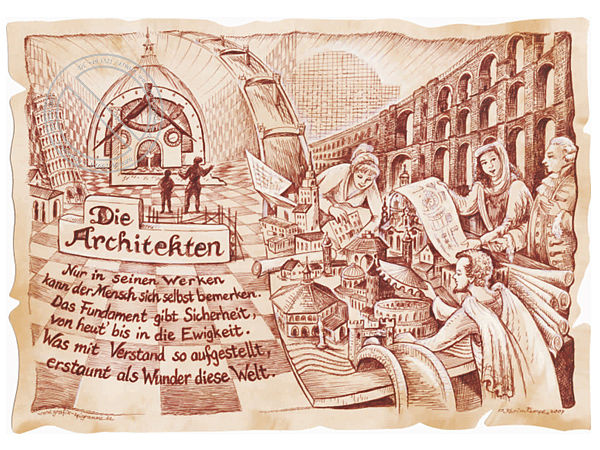 Die
Architekten
Nur in seinen Werken
kann der Mensch sich selbst bemerken.
Das Fundament gibt Sicherheit,
von heut' bis in die Ewigkeit.
Was mit Verstand so aufgestellt,
erstaunt als Wunder diese Welt.